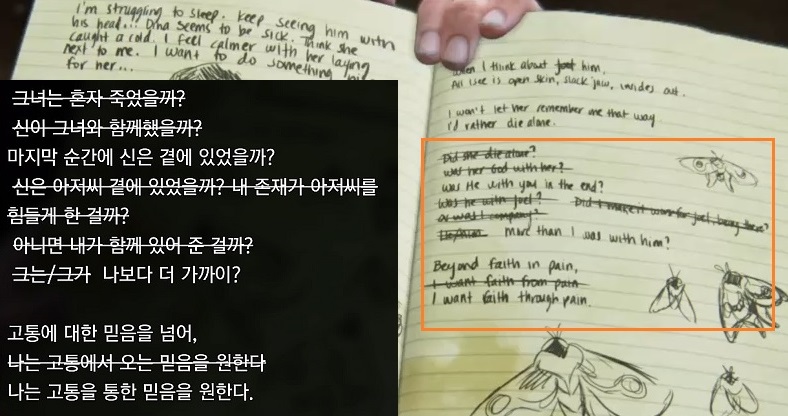 I'm struggling to sleep. Keep seeing him with
his head... Dina seems to be sick. Think she
caught a cold. I feel calmer with her laying
next to me. I want to do something
for her...
그녀는 혼자 죽었을까?
신이 그녀와 함께했을까?
마지막 순간에 신은 곁에 있었을까?
신은 아저씨 곁에 있었을까? 내 존재가 아저씨를
힘들게 한 걸까?
아니면 내가 함께 있어 준 걸까?
그는/그가 나보다 더 가까이?
고통에 대한 믿음을 넘어,
나는 고통에서 오는 믿음을 원한다
나는 고통을 통한 믿음을 원한다.
When I think about him.
All I see is open skin, slack jaw, insides out.
I won't let her remember me that way
I'd rather die alone.
Did she die alone?
was her God with her?
was He with you in the end?
was he with Joel? Did I make it worse for Joel, being there?
or was I company?
more than I was with him?
Beyond faith in pain,
I want faith from pain
I want faith through pain.